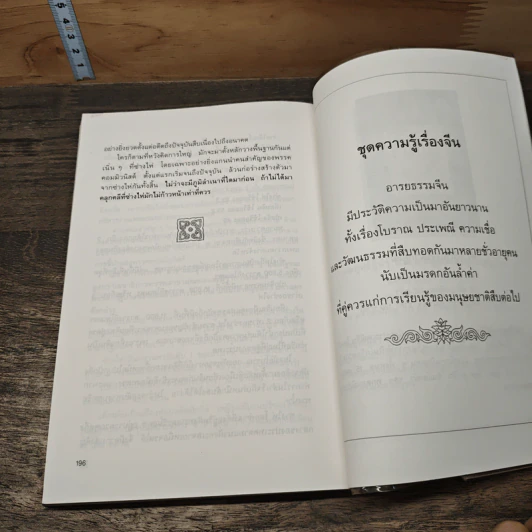 5
4
3
2
1
อย่างยิ่งยวดตั้งแต่อดีตถึงปัจจุบันสืบเนื่องไปถึงอนาคต
ใครก็ตามที่หวังคิดการใหญ่ มักจะมาตั้งหลักวางพื้นฐานกันแต่
เนิ่น ๆ ที่ช่างไห่ โดยเฉพาะอย่างยิ่งแกนนำคนสำคัญของพรรค
คอมมิวนิสต์ ตั้งแต่แรกเริ่มจนถึงปัจจุบัน ล้วนก่อร่างสร้างตัวมา
จากช่างไห่กันทั้งสิ้น ไม่ว่าจะมีภูมิลำเนาที่ใดมาก่อน ถ้าไม่ได้มา
คลุกคลีที่ช่างไห่มักไม่ก้าวหน้าเท่าที่ควร
196
ชุดความรู้เรื่องจีน
อารยธรรมจีน
มีประวัติความเป็นมาอันยาวนาน
ทั้งเรื่องโบราณ ประเพณี ความเชื่อ
และวัฒนธรรมที่สืบทอดกันมาหลายชั่วอายุคน
นับเป็นมรดกอันล้ำค่า
ที่คู่ควรแก่การเรียนรู้ของมนุษยชาติสืบต่อไป